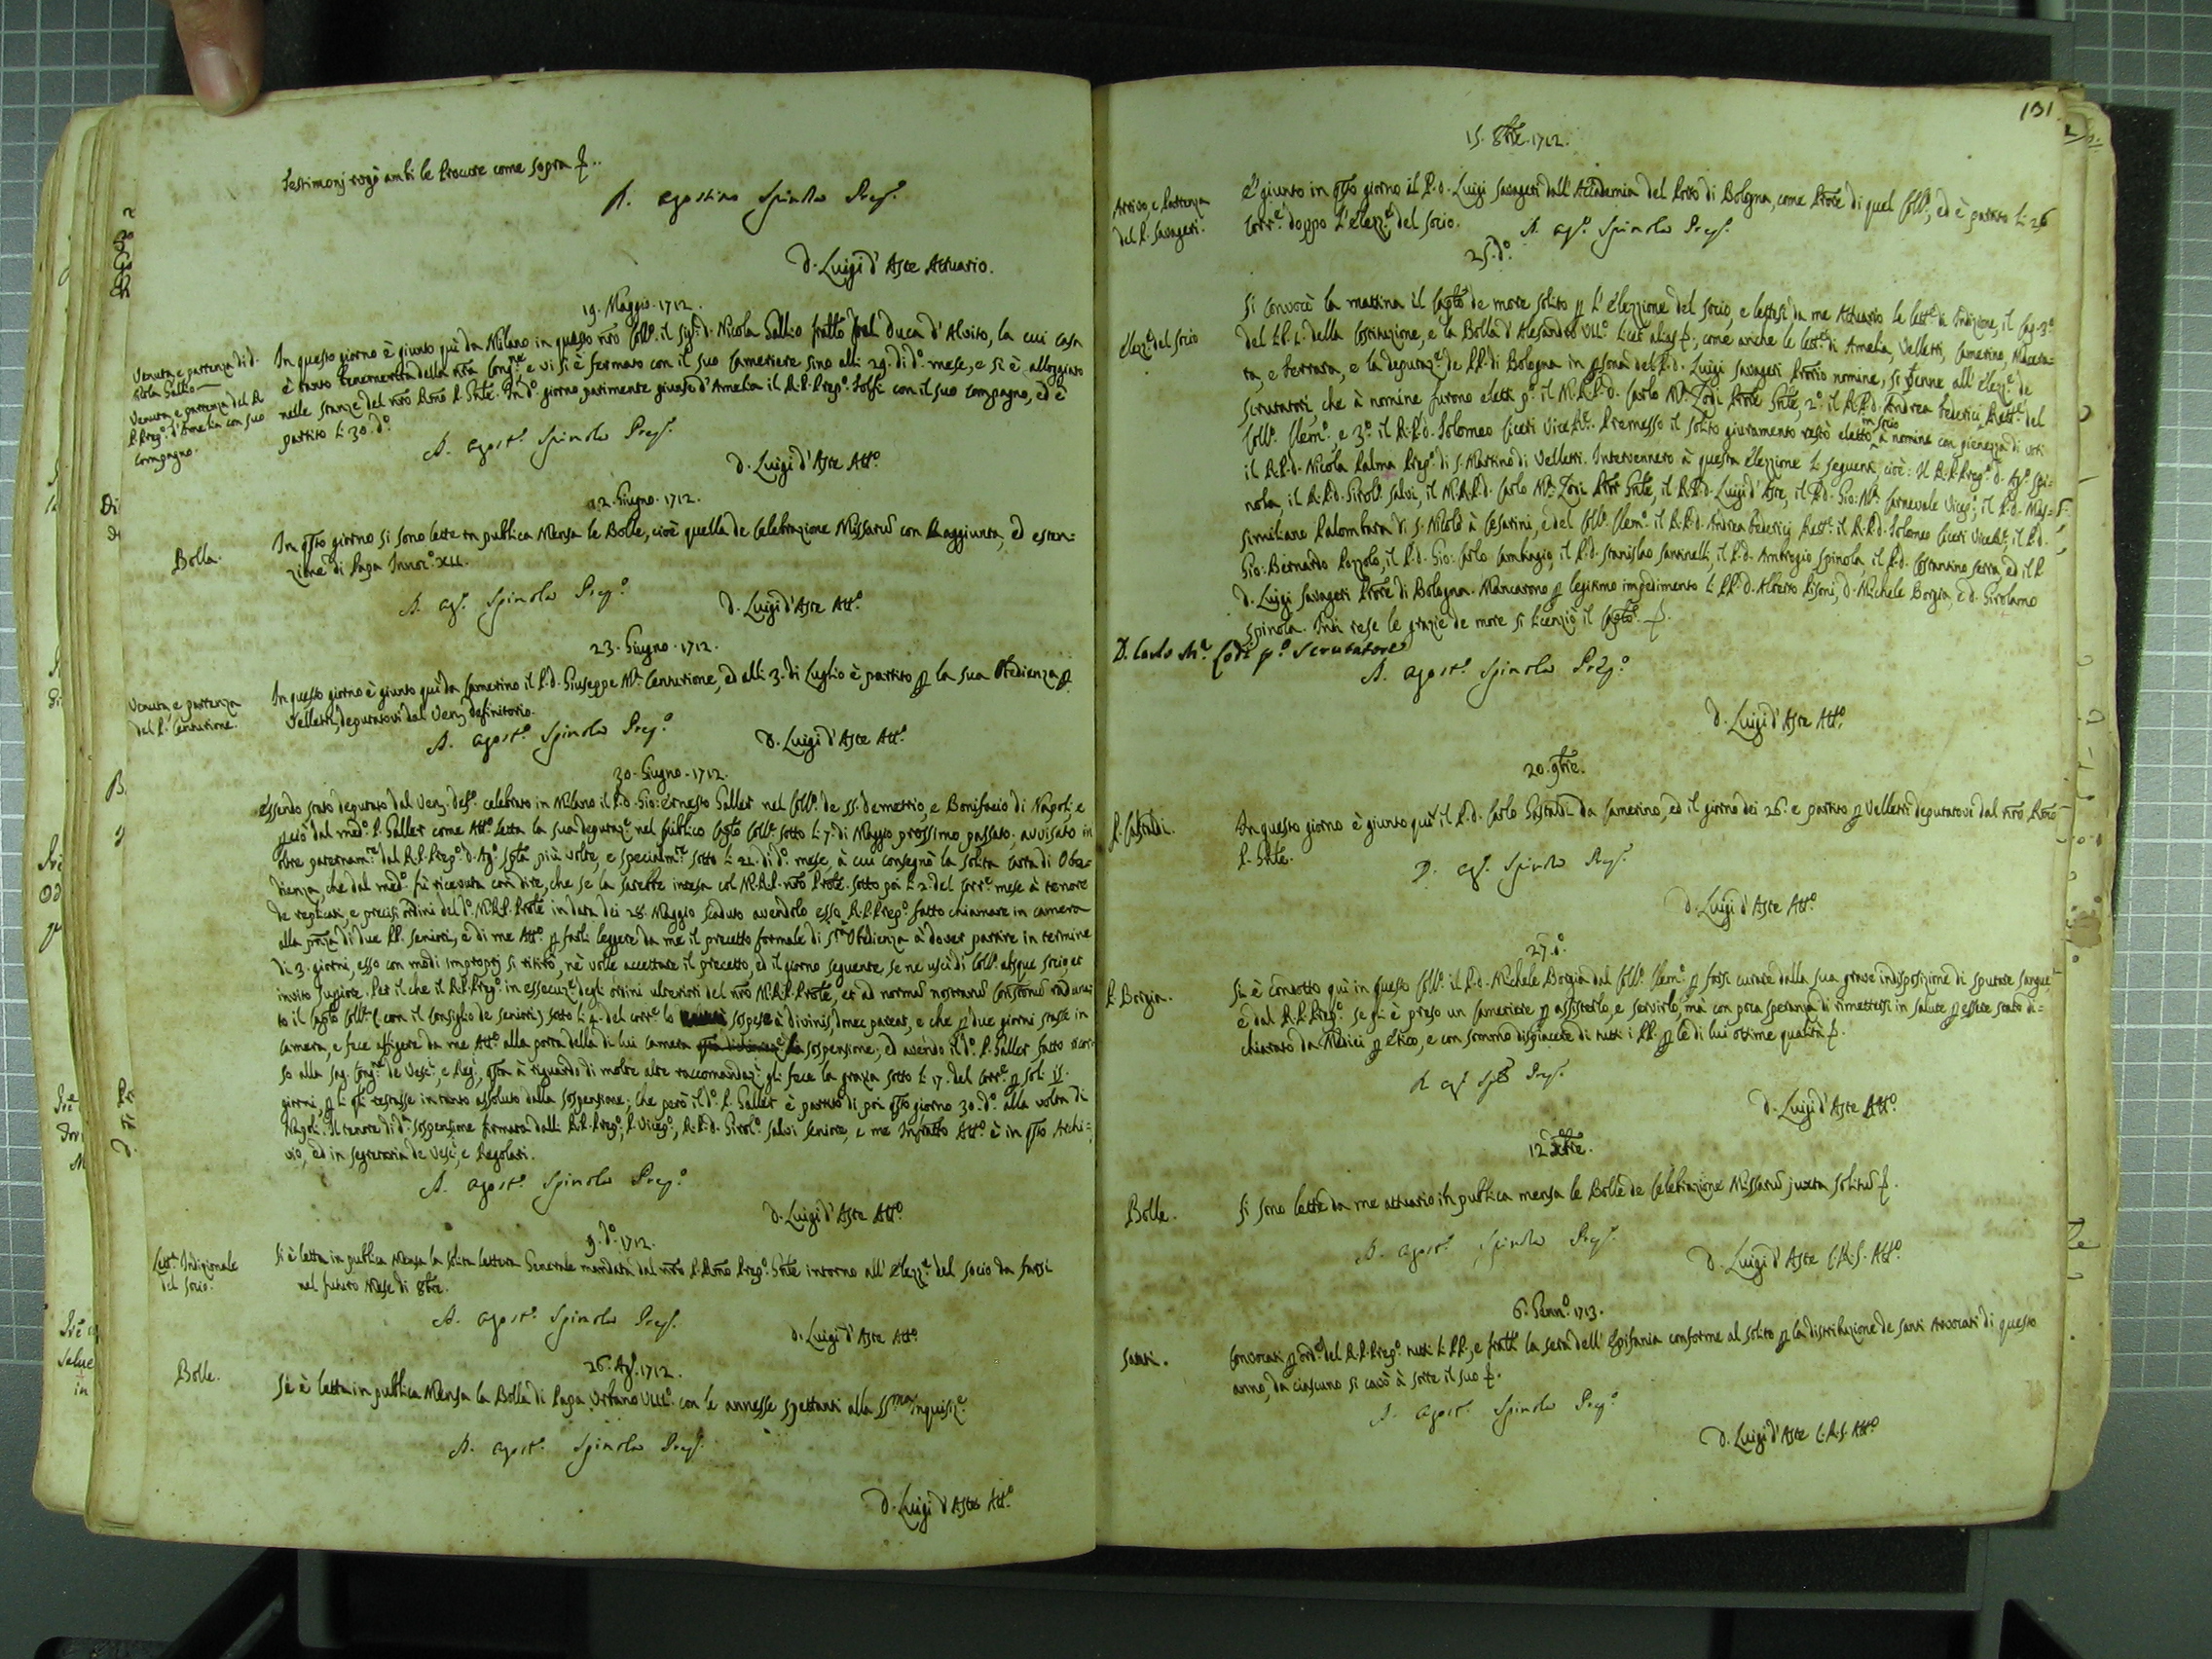 Testimonj rogò ambi le Procure come sopra &.
D. Agostino Spinola Prep.
D. Luigi d'Aste Attuario.
19. Maggio. 1712.
Venuta, e partenza di d. Nicola Gallio
In questo giorno è giunto quì da Milano in questo nrõ Coll.º il Sig.r d. Nicola Gallio fratello del Duca d'Alvito, la cui casa
è tanto benemerita della nrã Congne, e vi si è fermato con il suo Cameriere sino alli 29. di d.º mese, e si è alloggiato
Venuta, e partenza del R. P. Prep.º d'Amelia con suo compagno.
nelle stanze del nrõ Rmõ P. Gnle. In d.º giorno parimente giunse d'Amelia il R. P. Prep.º Tolfi con il suo compagno, ed è
partito li 30. d.º
D. Agost.º Spinola Prep.
D. Luigi d'Aste Att.º
12. Giugno. 1712.
Bolla.
In qsto giorno si sono lette in publica Mensa le Bolle, cioè quella de Celebrazione Missarũ con l'aggiunta, ed esten=
zione di Papa Innoc.º XII.
D. Ag. Spinola Prep.º
D. Luigi d'Aste Att.º
23. Giugno. 1712.
Venuta, e partenza del P. Centurione.
In questo giorno è giunto quì da Camerino il P. d. Giuseppe M.ª Centurione, ed alli 3. di Luglio è partito p la sua Obedienza p
Velletri, deputatovi dal Ven. Definitorio.
D. Agost.º Spinola Prep.º
D. Luigi d'Aste Att.º
30. Giugno. 1712.
Essendo stato deputato dal Ven. Def.º celebrato in Milano il P. d. Gio: Ernesto Galler nel Coll.º de SS. Demetrio, e Bonifacio di Napoli, e
pciò dal med.º P. Galler come Att.º letta la sua deputaz.e nel publico Cap̃lo Coll.e sotto li 7. di Maggio prossimo passato; avvisato in
oltre paternam.te dal R. P. Prep.º D. Ag.º Spla più volte, e specialm.te sotto li 22. di d.º mese, à cui consegnò la solita carta di Obe=
dienza, che dal med.º fù ricevuta con dire, che se la sarebbe intesa col M. R. P. nrõ Prõle. Sotto poi li 2. del corr.e mese à tenore
de replicati, e precisi ordini del d.º M. R. P. Prõle in data dei 28. Maggio scaduto avendolo esso R. P. Prep.º fatto chiamare in camera
alla pñza di due PP. Seniori, e di me Att.º p farli leggere da me il precetto formale di S.ta Obedienza à dover partire in termine
di 3. giorni, esso con modi improprj si ritirò, nè volle accettare il precetto, ed il giorno seguente se ne uscì di Coll.º absque socio, et
invito Supiore. Per il che il R. P. Prep.º in essecuz.e degli ordini ulteriori del nrõ M. R. P. Prõle, et ad normã nostrarũ Constonũ raduna=
to il Cap̃lo Coll.e (con il Consiglio de Seniori) sotto li 4. del corr.e lo sospese à divinis, donec pareat, e che p due giorni stasse in
camera, e fece affigere da me Att.º alla porta della di lui camera la sospensione; ed avendo il d.º P. Galler fatto ricor=
so alla Sag. Congne de Vesc.i, e Reg.i, qsta à riguardo di molte altre raccomandaz.i gli fece la grazia sotto li 17. del corr.e p soli 15.
giorni, p li qli restasse intanto assoluto dalla sospensione; che però il d.º P. Galler è partito di poi qsto giorno 30. d.º alla volta di
Napoli. Il tenore di d.ª sospensione firmata dalli R. P. Prep.º, P. Vicep.º, R. P. d. Girol.º Salvi Seniore, e me Infratto Att.º è in qsto Archi=
vio, ed in Segretaria de Vesc.i, e Regolari.
D. Agost.º Spinola Prep.º
D. Luigi d'Aste Att.º
9. d.º 1712.
Lett.ª Indizionale del Socio.
Si è letta in publica Mensa la solita lettera Generale mandata dal nrõ P. Rmõ Prep.º Gnle intorno all'Elezz.e del Socio da farsi
nel futuro Mese di 8bre.
D. Agost.º Spinola Prep.
D. Luigi d'Aste Att.º
26. Ag.º 1712.
Bolle.
Si è letta in publica Mensa la Bolla di Papa Urbano VIII.º con le annesse spettanti alla SSma Inquisiz.e
D. Agost.º Spinola Prep.
D. Luigi d'Aste Att.º
131.
15. 8bre. 1712.
Arrivo, e Partenza del P. Savageri.
E' giunto in qsto giorno il P. d. Luigi Savageri dall'Accademia del Porto di Bologna, come Prõre di quel Coll.º, ed è partito li 26
Corr.e doppo l'Elezz.e del Socio.
D. Ag.º Spinola Prep.
25. d.º
Elezz.e del Socio
Si convocò la mattina il Cap̃lo de more solito p l'Elezzione del Socio, e lettesi da me Attuario le lett.e di Indizione, il Cap. 3.º
del L.º 1. della Costituzione, e la Bolla d'Alesandro VII.º Licet alias &., come anche le lett.e di Amelia, Velletri, Camerino, Macera=
ta, e Ferrara, e la deputaz.e de PP. di Bologna in psona del P. d. Luigi Savageri Prõrio nomine, si venne all'elezz.e de
scrutatori, che à nomine furono eletti p.º il M. R. P. d. Carlo M.ª Lodi Prõre Gnle, 2.º il R. P. d. Andrea Federici Rett.e del
Coll.º Clem.º e 3.º il R. P. d. Tolomeo Ciceri ViceRe. Premesso il solito giuramento restò eletto in Socio à nomine con pienezza di voti
il R. P. d. Nicola Palma Prep.º di S. Martino di Velletri. Intervennero à questa Elezzione li seguenti, cioè: il R. P. Prep.º D. Ag.º Spi=
nola, il R. P. d. Girol.º Salvi, il M. R. P. d. Carlo M.ª Lodi Prõr Gnle, il R. P. d. Luigi d'Aste, il P. d. Gio: M.ª Carnevale Vicep.º, il P. d. Mas=
similiano Palombara di S. Nicolò à Cesarini, e del Coll.º Clem.º il R. P. d. Andrea Federici Rett.e il R. P. d. Tolomeo Ciceri ViceRe. il P. d.
Gio: Bernardo Pozzolo, il P. d. Gio: Carlo Cambiagio, il P. d. Stanislao Santinelli, il P. d. Ambrogio Spinola, il P. d. Costantino Serra, ed il P.
D. Luigi Savageri Prõre di Bologna. Mancarono p legitimo impedimento li PP. D. Alberto Pisoni, D. Michele Borgia, e D. Girolamo
Spinola. Indi rese le grazie de more si licenziò il Cap̃lo. &.
D. Carlo M.ª Lodi p.º Scrutatore
D. Agost.º Spinola Prep.º
D. Luigi d'Aste Att.º
20. 9bre.
P. Gastaldi.
In questo giorno è giunto quì il P. d. Carlo Gastaldi da Camerino, ed il giorno dei 26. è partito p Velletri deputatovi dal nrõ Rmõ
P. Gnle.
D. Ag. Spinola Prep.
D. Luigi d'Aste Att.º
27. d.º
P. Borgia.
Si è condotto quì in questo Coll.º il P. d. Michele Borgia dal Coll.º Clem.º p farsi curare dalla sua grave indisposizione di sputare sangue
e dal R. P. Prep.º se gli è preso un Cameriere p assisterlo, e servirlo, mà con poca speranza di rimettersi in salute p essere stato di=
chiarato da Medici p etico, e con sommo dispiacere di tutti i PP. p le di lui ottime qualità &.
D. Ag. Spla Prep.
D. Luigi d'Aste Att.º
12 Xbre.
Bolle.
Si sono lette da me attuario in publica mensa le Bolle de Celebrazione Missarũ juxta solitũ &.
D. Agost.º Spinola Prep.
D. Luigi d'Aste C.R.S. Att.º
6. Genn.º 1713.
Santi.
Convocati p ord.e del R. P. Prep.º tutti li PP., e fratelli la sera dell'Epifania conforme al solito p la distribuzione de Santi Avvocati di questo
anno, da ciascuno si cavò à sorte il suo &.
D. Agost.º Spinola Prep.º
D. Luigi d'Aste C.R.S. Att.º